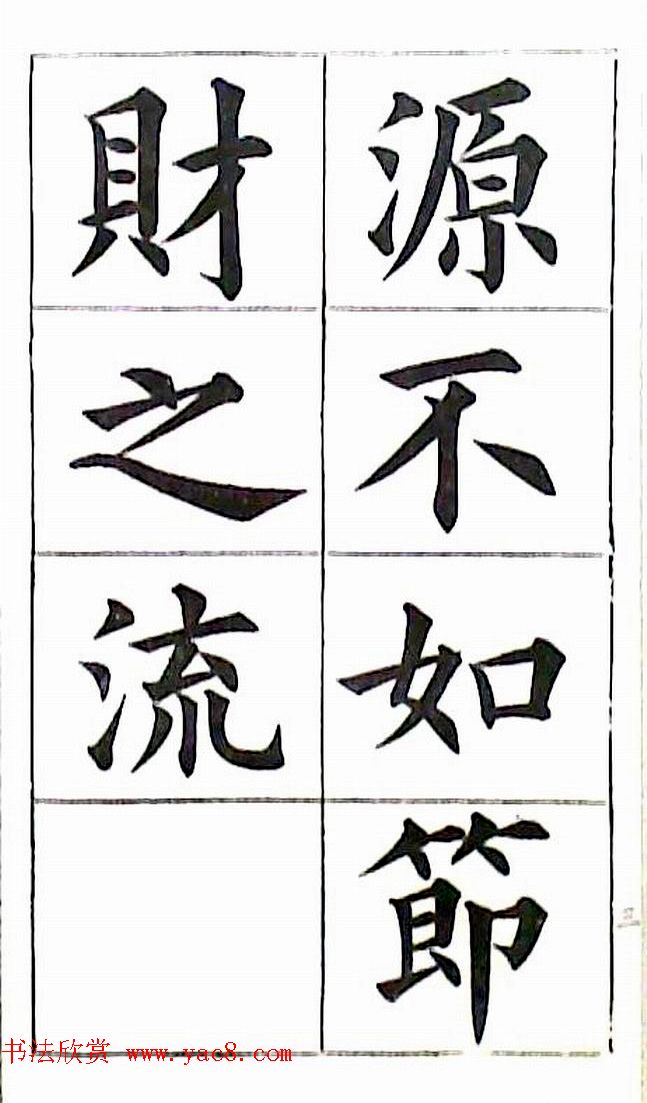 源不如節
財之流
书法欣赏 www.yac8.com